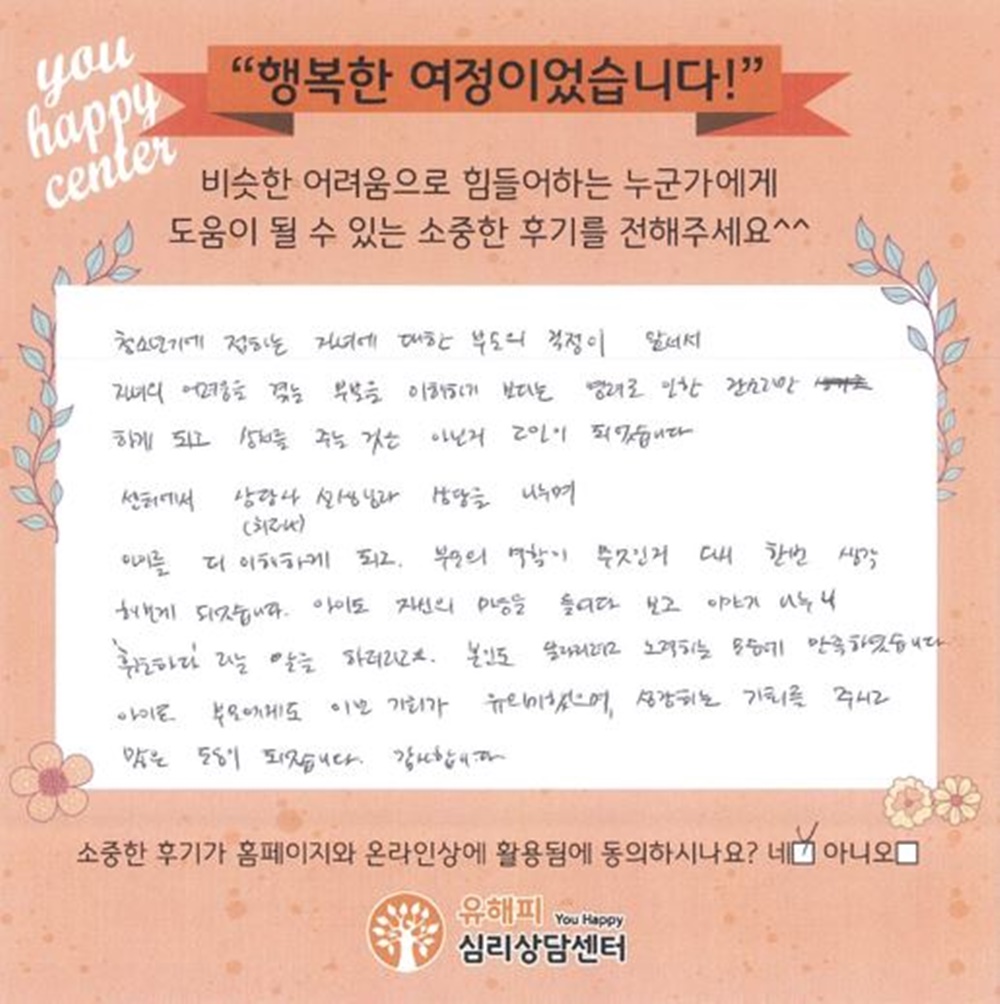 you
happy
center
“행복한 여정이었습니다!”
비슷한 어려움으로 힘들어하는 누군가에게
도움이 될 수 있는 소중한 후기를 전해주세요^^
청소년기에 접하는 자녀에 대한 부모의 걱정이 앞서서
자녀의 어려움을 겪는 부분을 이해하기 보다는 염려로 인한 잔소리만
하게 되고 상처를 주는 것은 아닌지 고민이 되었습니다
센터에서 상담사 선생님과 상담을 나누며
아이를 더 이해하게 되고, 부모의 역할이 무엇인지 다시 한번 생각
해보게 되었습니다. 아이도 자신의 마음을 들여다 보고 이야기 나누니
'후련하다' 라는 말을 하더라고요. 본인도 달라지려고 노력하는 모습에 만족하였습니다
아이도 부모에게도 이번 기회가 유의미했으며, 성장하는 기회를 주시고
많은 도움이 되었습니다. 감사합니다
소중한 후기가 홈페이지와 온라인상에 활용됨에 동의하시나요? 네 아니오
유해피 You Happy
심리상담센터